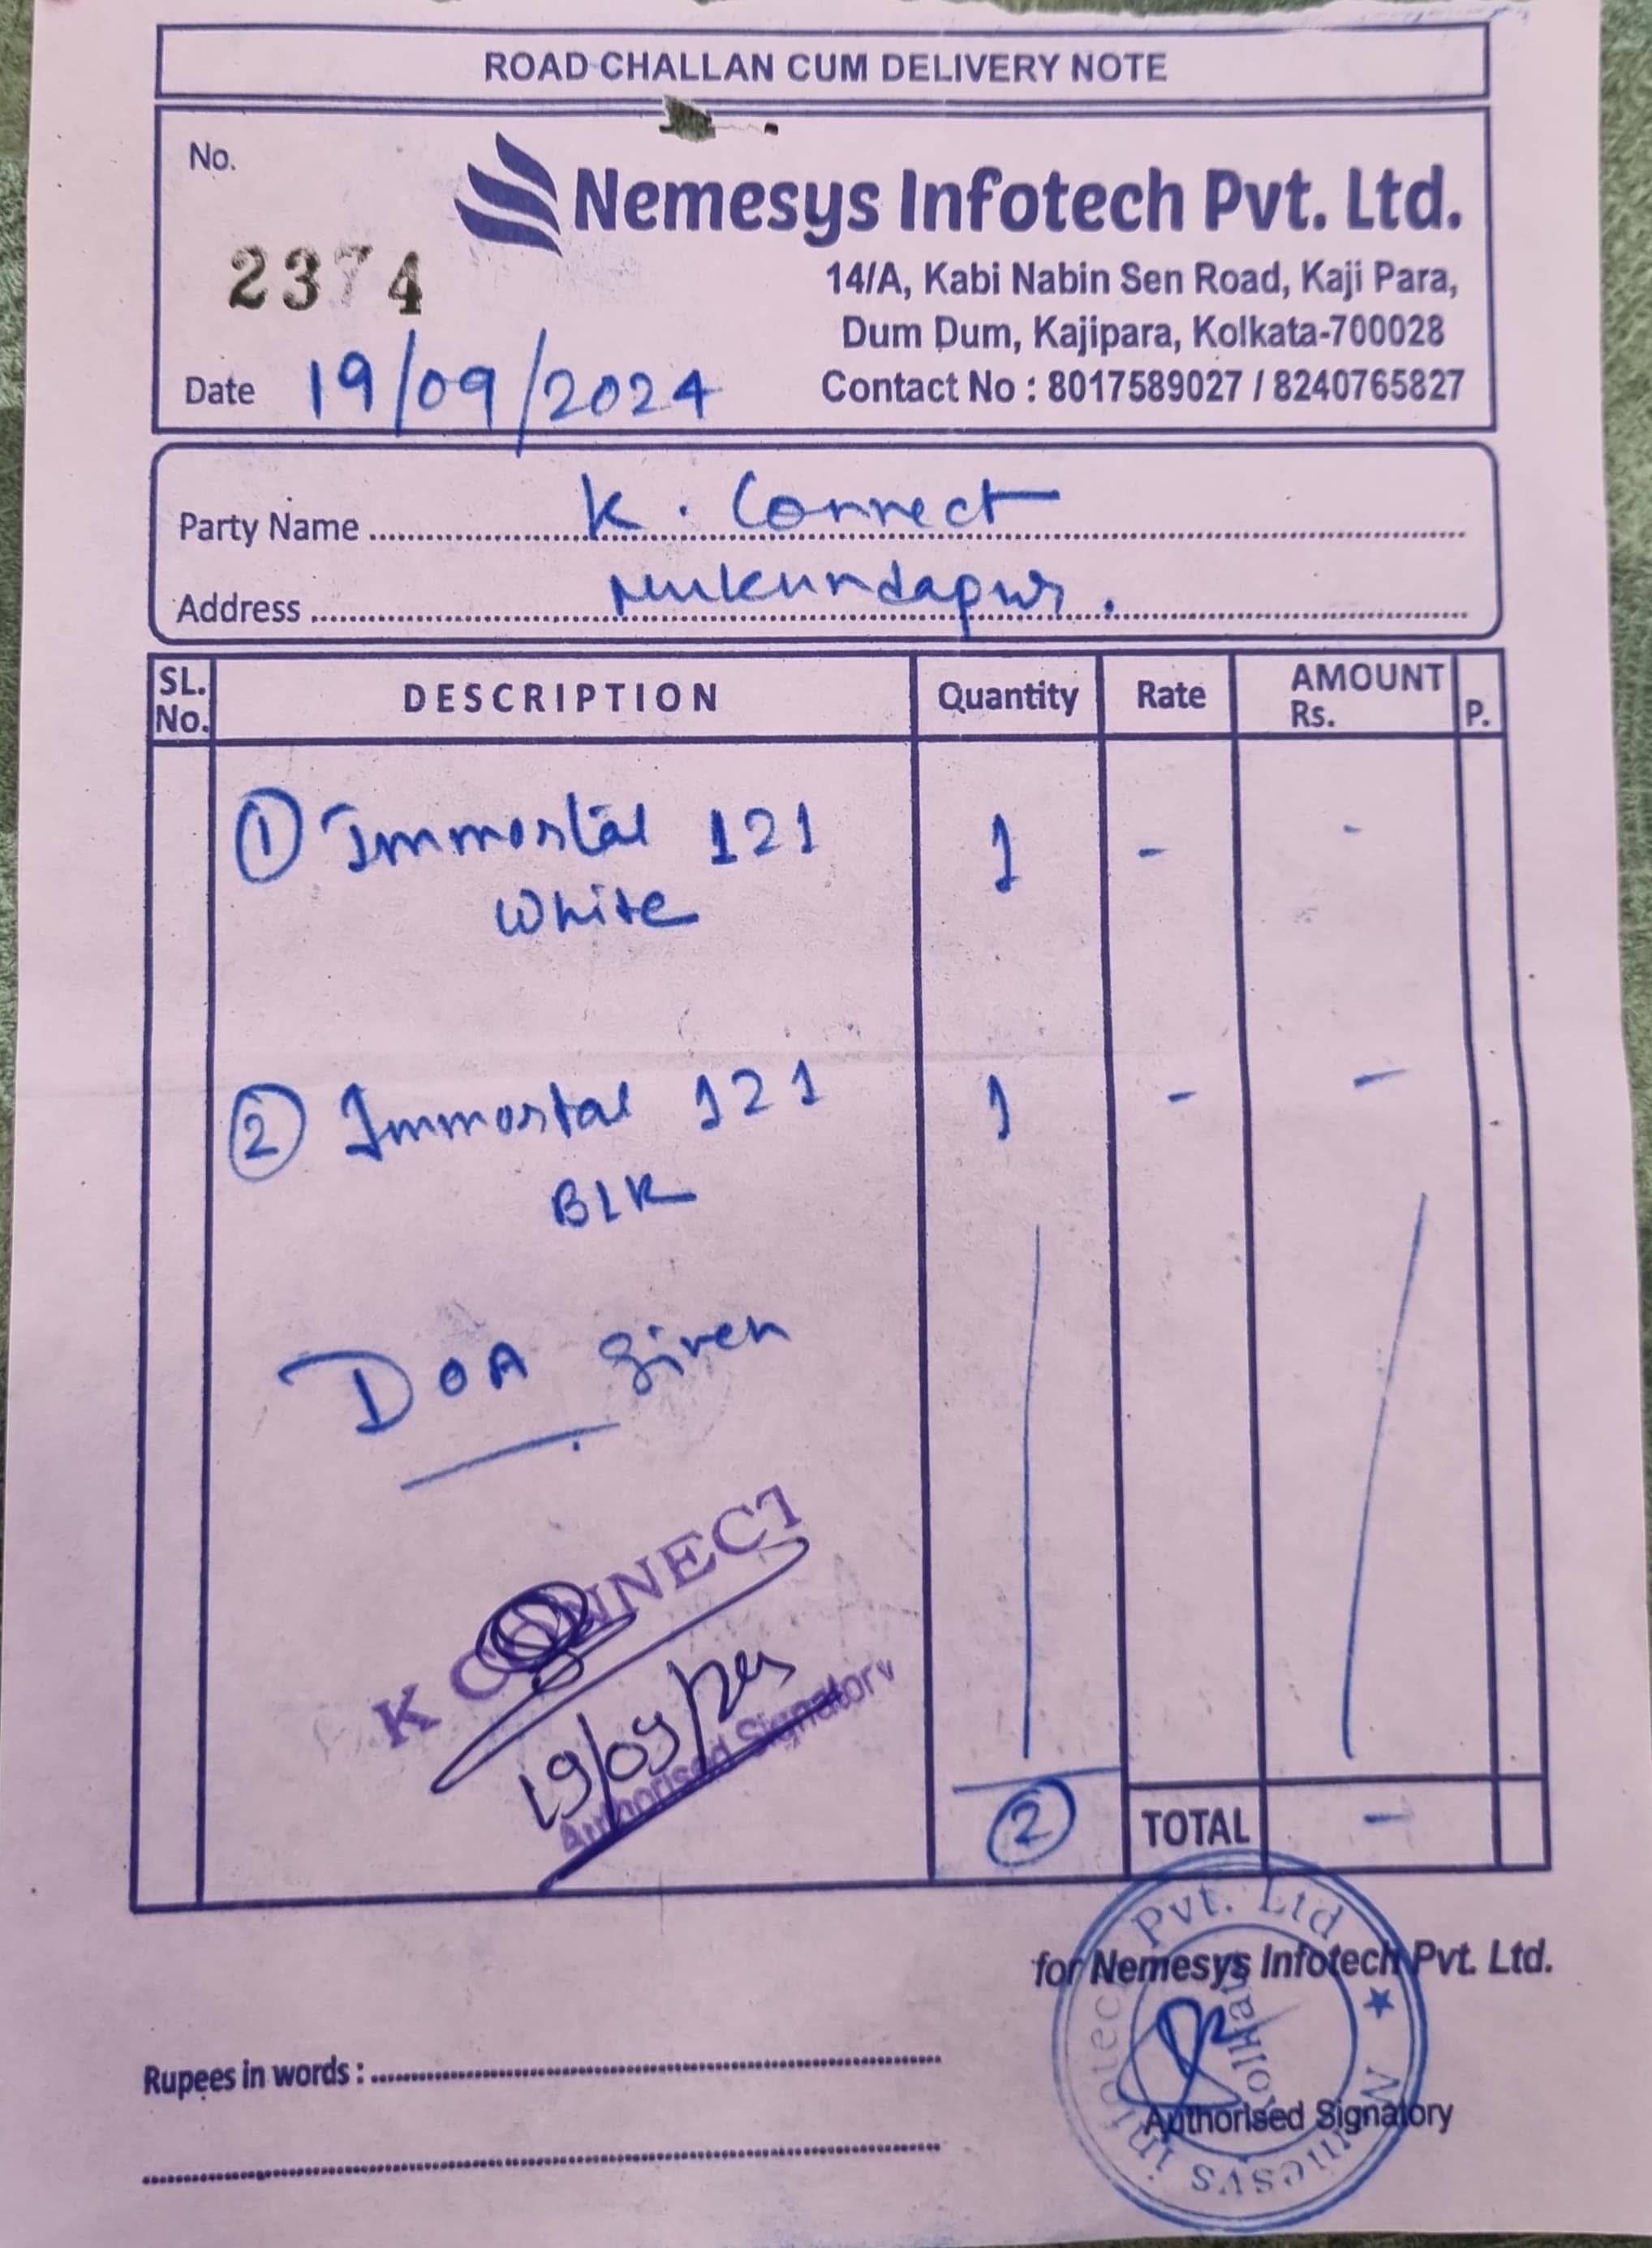 ROAD CHALLAN CUM DELIVERY NOTE
No.
2374
Nemesys Infotech Pvt. Ltd.
14/A, Kabi Nabin Sen Road, Kaji Para,
Dum Dum, Kajipara, Kolkata-700028
Contact No : 8017589027 / 8240765827
Date 19/09/2024
Party Name K. Connect
Address Mukundapur.
SL. No. DESCRIPTION Quantity Rate AMOUNT Rs. P.
① Immortal 121 1 - -
White
② Immortal 121 1 - -
BLK
DOA given
K CONNECT
19/09/24
Authorised Signatory
② TOTAL -
for Nemesys Infotech Pvt. Ltd.
Nemesys Infotech Pvt. Ltd ★
Kolkata
Authorised Signatory
Rupees in words :